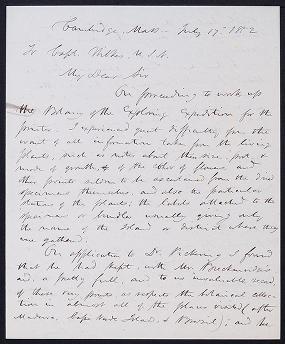 Cambridge, Mass. July 17th 1852
To Capt. Wilkes, U.S.N.
My Dear Sir
On proceeding to work up
the Botany of the Exploring Expedition for the
printer, I experienced great difficulty from the
want of all information taken from the living
plants, such as notes about their size, port,
mode of growth, & of the color of flowers and
other points seldom to be ascertained from the dried
specimens themselves, and also the particular
station of the plants; the labels attached to the
specimens or bundles usually giving only
the name of the Island or district where they
were gathered.
On application to Dr. Pickering I found
that he had kept, with Mr. Brackenridge's
aid, a pretty full, and to me invaluable record
of these very points as respects the botanical collec-
tion in almost all of the places visited (after
Madeira, Cape Verde Islands, &
), and the